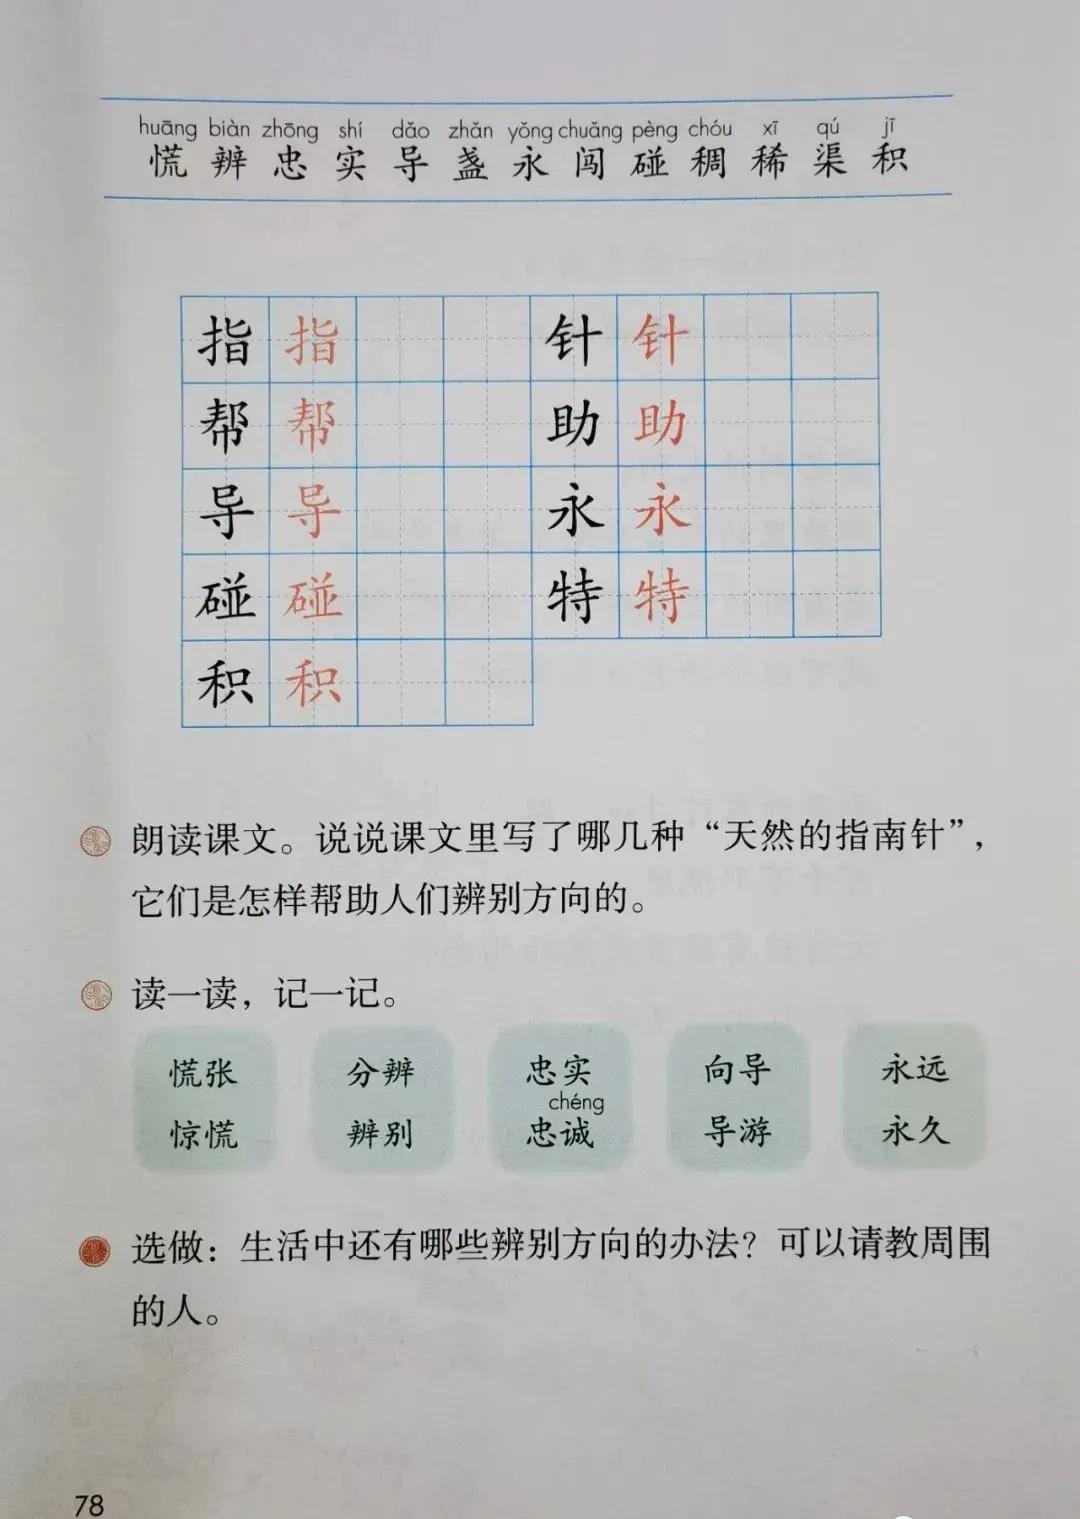 huāng biàn zhōng shí dǎo zhǎn yǒng chuǎng pèng chóu xī qú jī
慌 辨 忠 实 导 盏 永 闯 碰 稠 稀 渠 积
指 指 针 针
帮 帮 助 助
导 导 永 永
碰 碰 特 特
积 积
朗读课文。说说课文里写了哪几种“天然的指南针”，
它们是怎样帮助人们辨别方向的。
读一读，记一记。
慌张 分辨 忠实 向导 永远
chéng
惊慌 辨别 忠诚 导游 永久
选做：生活中还有哪些辨别方向的办法？可以请教周围
的人。
78